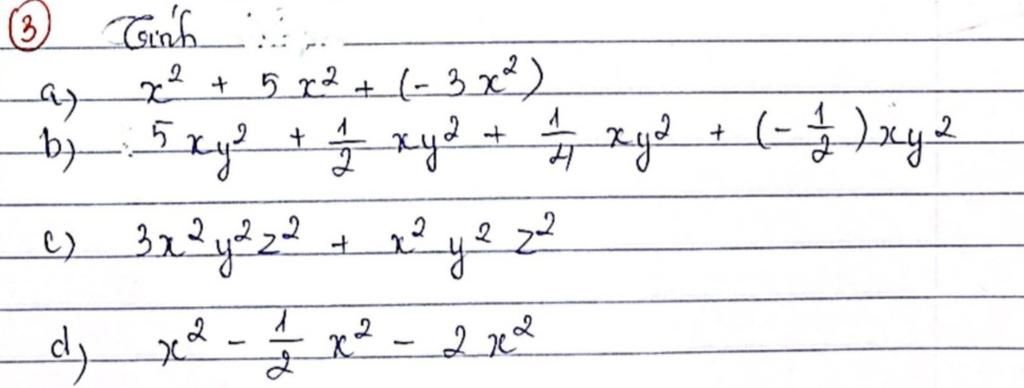 ③ Tính
a) x² + 5x² + (-3x²)
b) 5xy² + 1/2 xy² + 1/4 xy² + (-1/2)xy²
c) 3x²y²z² + x²y²z²
d) x² - 1/2 x² - 2x²